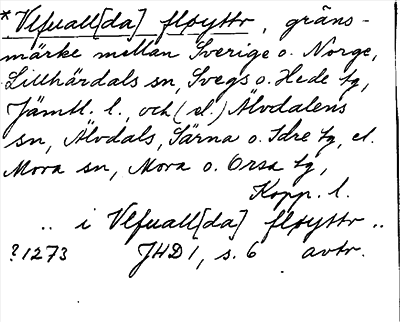 * Vlfuall[da] fløyttr, gräns-
märke mellan Sverige o. Norge,
Lillhärdals sn, Svegs o. Hede tg,
Jämtl. l., och (el.) Älvdalens
sn, Älvdals, Särna o. Idre tg, el.
Mora sn, Mora o. Orsa tg,
Kopp. l.
.. i Vlfuall[da] fløyttr ..
? 1273 JHD 1, s. 6 avtr.